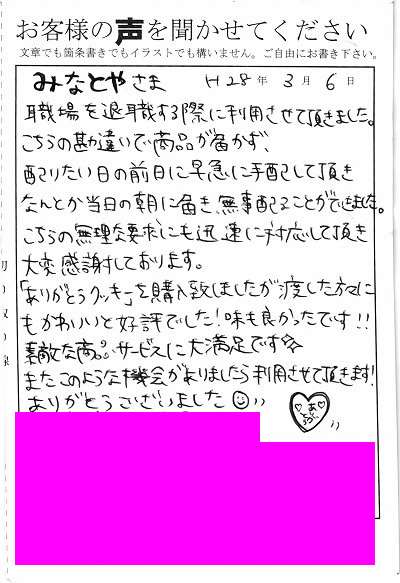 お客様の声を聞かせてください
文章でも箇条書きでもイラストでも構いません。ご自由にお書き下さい。
みなとやさま H28年 3月 6日
職場を退職する際に利用させて頂きました。
こちらの勘違いで商品が届かず、
配りたい日の前日に早急に手配して頂き
なんとか当日の朝に届き、無事配ることができました。
こちらの無理な要求にも迅速に対応して頂き
大変感謝しております。
「ありがとうクッキー」を購入致しましたが渡した方々に
もかわいいと好評でした!味も良かったです!!
素敵な商品、サービスに大満足です☆
またこのような機会がありましたら利用させて頂きます!
ありがとうございました
ありがとう
切り取り線